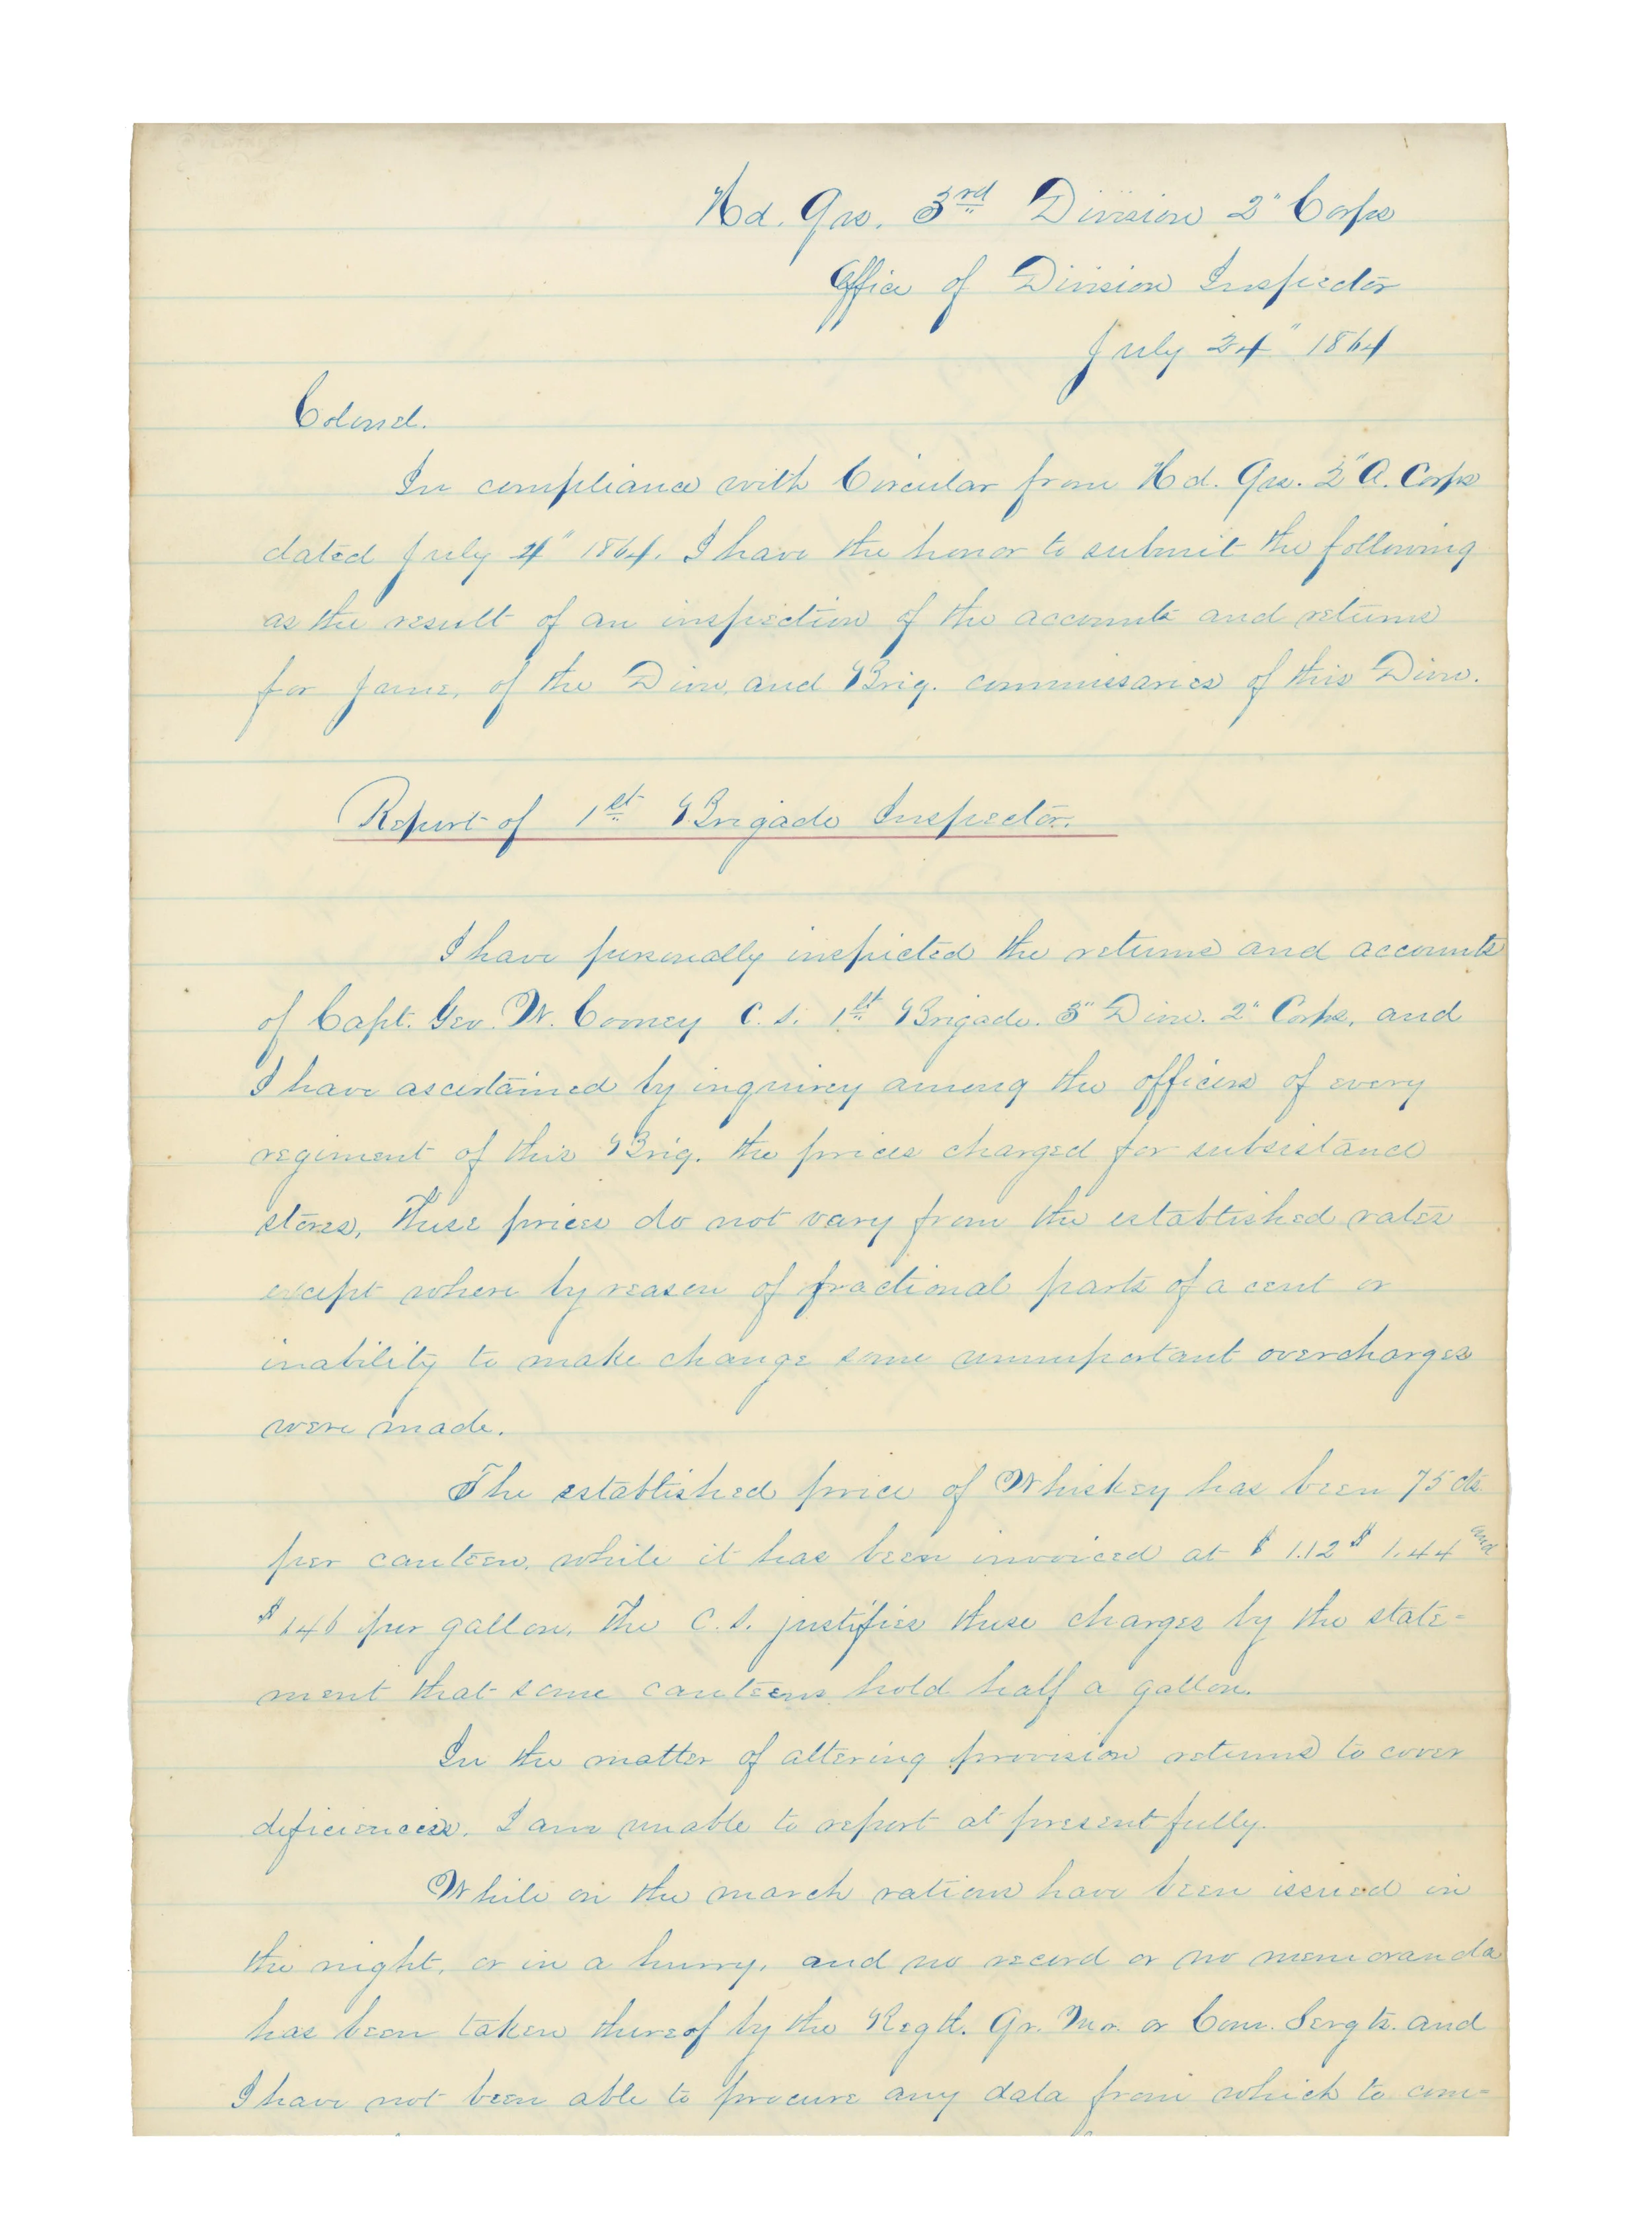 Hd. Qrs. 3rd Division 2" Corps
Office of Division Inspector
July 24" 1864
Colonel.
In compliance with Circular from Hd. Qrs. 2" A. Corps
dated July 4" 1864. I have the honor to submit the following
as the result of an inspection of the accounts and returns
for June, of the Divn. and Brig. commissaries of this Divn.
Report of 1st Brigade Inspector.
I have personally inspected the returns and accounts
of Capt. Geo. W. Cooney C. S. 1st Brigade. 3" Divn. 2" Corps, and
I have ascertained by inquirey among the officers of every
regiment of this Brig. the prices charged for subsistance
stores, these prices do not vary from the established rates
except where by reason of fractional parts of a cent or
inability to make change some unimportant overcharges
were made.
The established price of Whiskey has been 75 cts
per canteen, while it has been invoiced at $ 1.12 $ 1.44 and
$ 1.46 per gallon. The C. S. justifies these charges by the state=
ment that some canteens hold half a gallon.
In the matter of altering provision returns to cover
deficiencies. I am unable to report at present fully.
While on the march rations have been issued in
the night, or in a hurry, and no record or no memoranda
has been taken thereof by the Regtl. Qr. Mr. or Com. Sergts. and
I have not been able to procure any data from which to com=